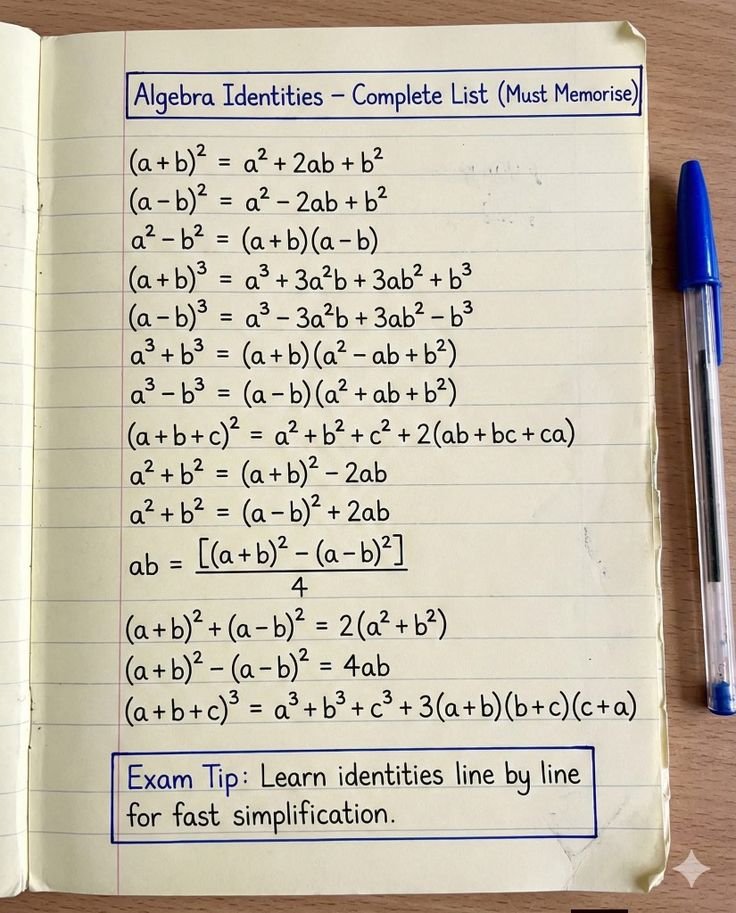 Algebra Identities – Complete List (Must Memorise)
(a + b)² = a² + 2ab + b²
(a − b)² = a² − 2ab + b²
a² − b² = (a + b)(a − b)
(a + b)³ = a³ + 3a²b + 3ab² + b³
(a − b)³ = a³ − 3a²b + 3ab² − b³
a³ + b³ = (a + b)(a² − ab + b²)
a³ − b³ = (a − b)(a² + ab + b²)
(a + b + c)² = a² + b² + c² + 2(ab + bc + ca)
a² + b² = (a + b)² − 2ab
a² + b² = (a − b)² + 2ab
ab = [(a + b)² − (a − b)²] / 4
(a + b)² + (a − b)² = 2(a² + b²)
(a + b)² − (a − b)² = 4ab
(a + b + c)³ = a³ + b³ + c³ + 3(a + b)(b + c)(c + a)
Exam Tip: Learn identities line by line
for fast simplification.